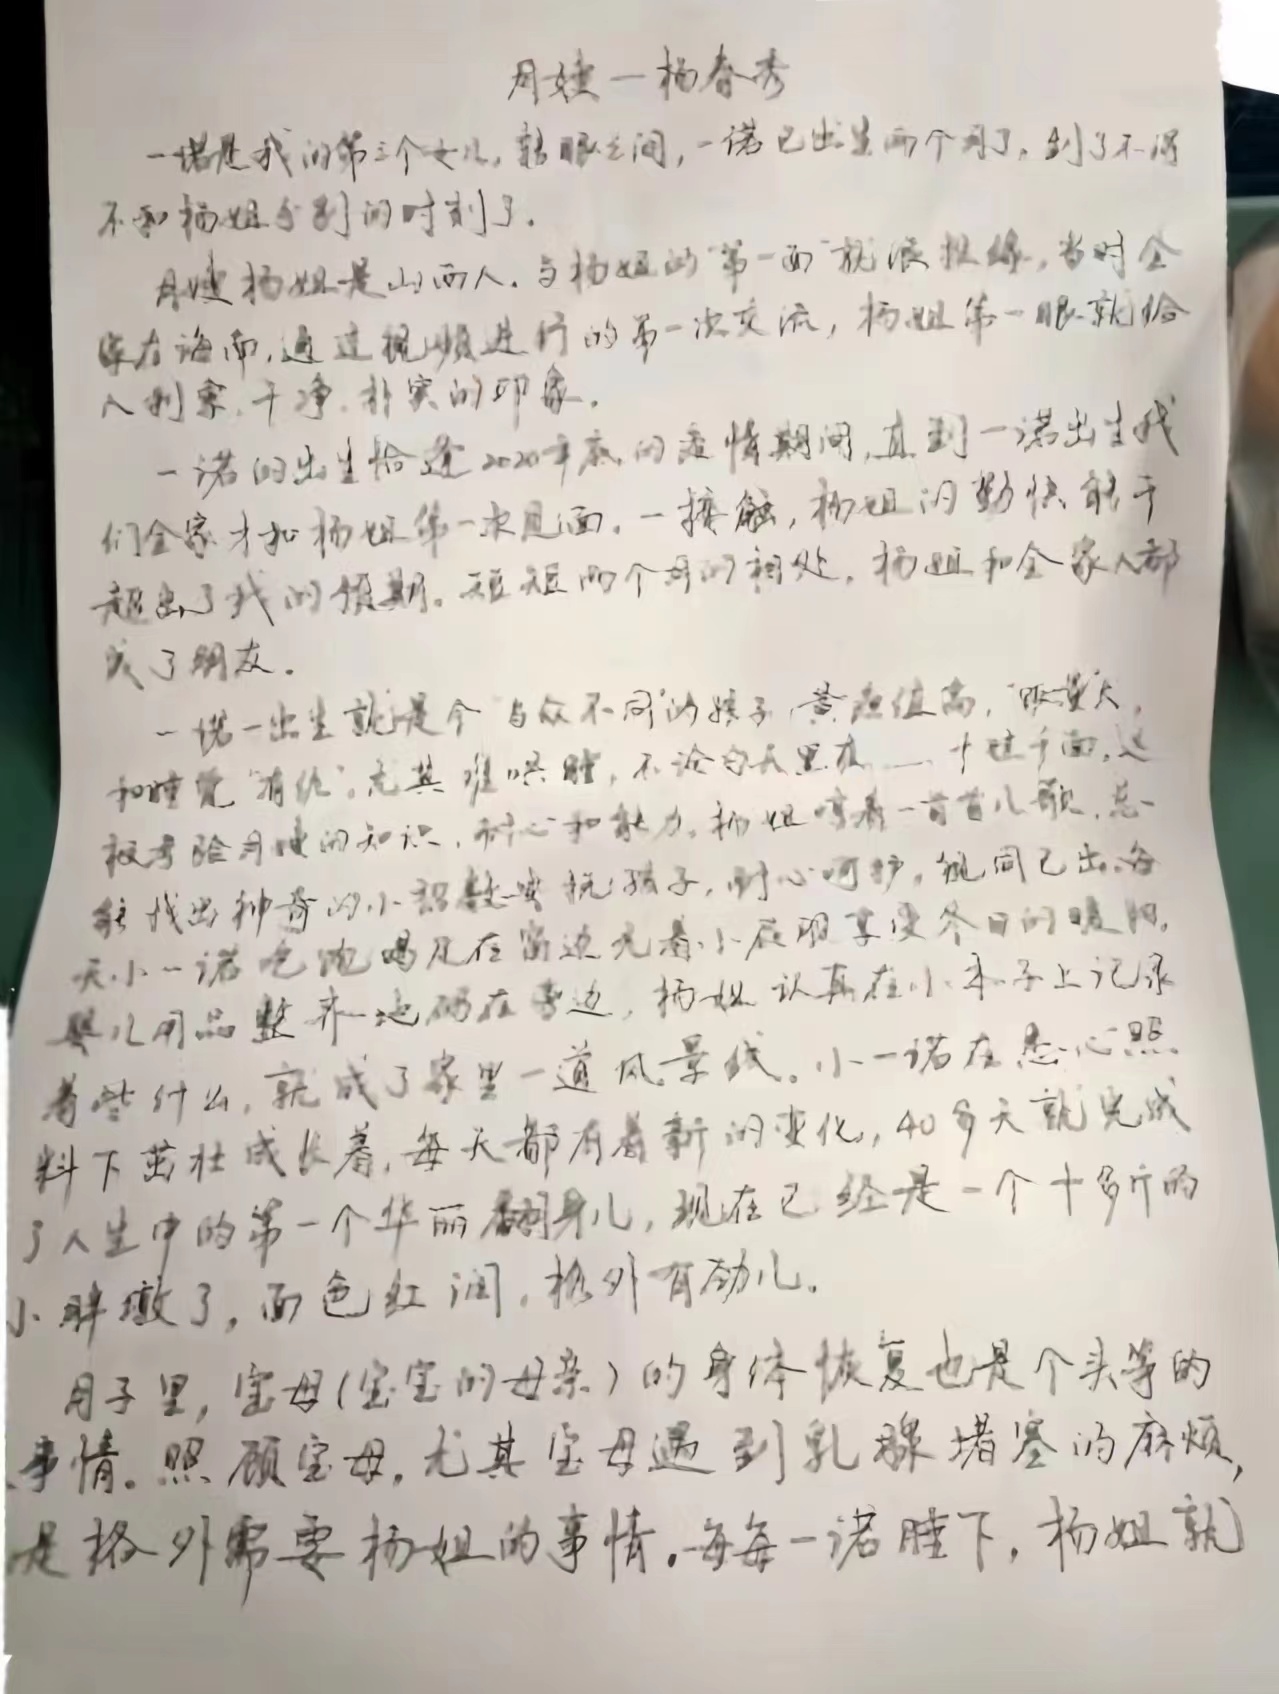 月嫂一杨春秀
一诺是我的第三个女儿，转眼之间，一诺已出生两个月了，到了不得
不和杨姐分别的时刻了。
月嫂杨姐是山西人。与杨姐的“第一面”就很投缘，当时全
家在海南，通过视频进行的第一次交流，杨姐第一眼就给
人利索、干净、朴实的印象。
一诺的出生恰逢2020年底的疫情期间，直到一诺出生我
们全家才和杨姐第一次见面。一接触，杨姐的勤快能干
超出了我的预期。短短两个月的相处，杨姐和全家人都
成了朋友。
一诺一出生就是个“与众不同”的孩子，黄疸值高，“眼
和睡觉“有仇”，尤其难哄睡，不论白天黑夜 这
极考验月嫂的知识、耐心和能力。杨姐哼着一首首儿歌，总
能找出神奇的小 安抚孩子，耐心呵护，视同己出。每
天小一诺吃饱喝足在窗边光着小屁股享受冬日的暖阳，
婴儿用品整齐地码在旁边，杨姐认真在小本子上记录
着些什么，就成了家里一道风景线。小一诺在悉心照
料下茁壮成长着，每天都有着新的变化，40多天就完成
了人生中的第一个华丽翻身儿，现在已经是一个十多斤的
小胖墩了，面色红润，格外有劲儿。
月子里，宝母(宝宝的母亲)的身体恢复也是个头等的
事情。照顾宝母，尤其宝母遇到乳腺堵塞的麻烦，
是格外需要杨姐的事情。每每一诺睡下，杨姐就